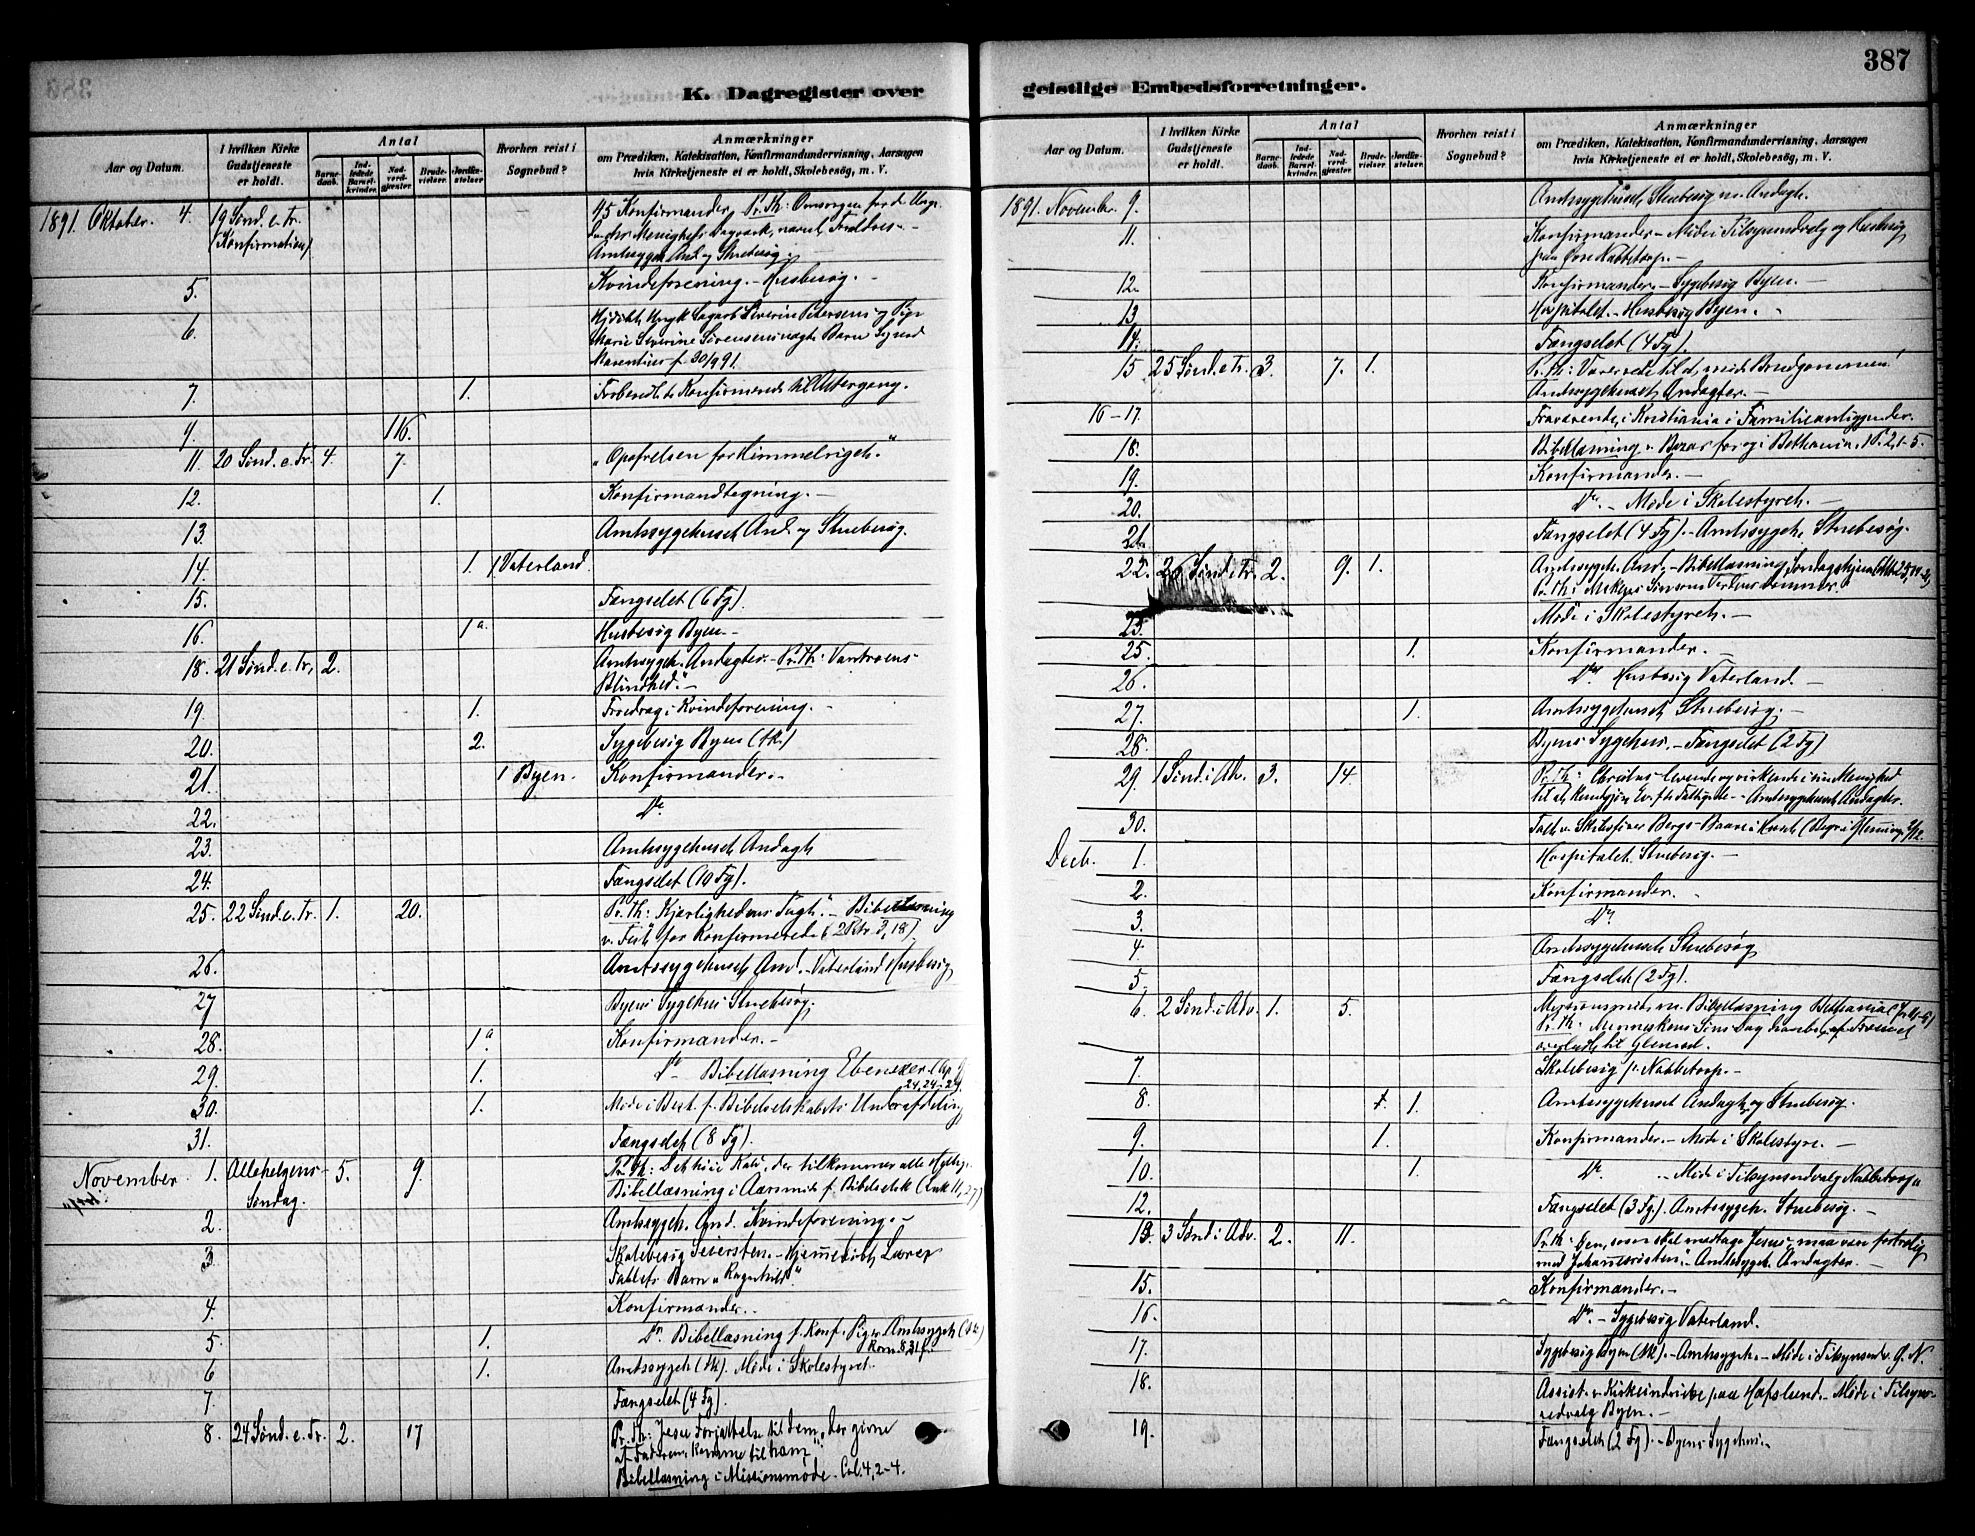 387
K. Dagregister over
geistlige Embedsforretninger.
Aar og Datum.
I hvilken Kirke Gudstjeneste er holdt.
Antal
Barnedaab.
Indledede Barselkvinder.
Nadverdgjester
Brudevielser.
Jordfæstelser.
Hvorhen reist i Sognebud?
Anmærkninger
om Prædiken, Katekisation, Konfirmandundervisning, Aarsagen
hvis Kirketjeneste ei er holdt, Skolebesög, m. V.
1891. Oktober. 4. 19 Sönd. e. Tr. (Konfirmation) 45 Konfirmander, Pr. Th: Omsorgen for d. Unge
Amtssygeh. And. og Stuebesøg.
5. Kvindeforening. - Husbesøg. -
6.
Marie Severine Sørensens uægte Barn Sigurd
Marentius f. 30/9 91.
7. 1. Forberedt de Konfirmerede til Altergang.
9. 116.
11. 20 Sönd. e. Tr. 4. 7. "Opofrelsen for Himmelriget."
12. 1. Konfirmandtegning. -
13. Amtssygehuset And. og Stuebesøg.
14. 1. 1 Vaterland.
15. Fængselet (6 Fg).
16. 1 a. Husbesøg Byen. -
18. 21 Sönd. e. Tr. 2. Amtssygeh. Andagter. - Pr. Th: Vantroens
Blindhed." -
19. 1. Foredrag i Kvindeforening. -
20. 2. Sygebesøg Byen (Ak.)
21. 1 Byen. Konfirmander. -
22. Do
23. Amtssygehuset Andagt
24. Fængselet (10 Fg).
25. 22 Sönd. e. Tr. 1. 20. Pr. Th: Kjærlighedens Tugt." - Bibellæsning
v. Fest for Konfirmerede (2 Kor 3, 18)
26. Amtssygehuset And. - Vaterland Husbesøg
27 Byens Sygehus Stuebesøg.
28. 1 a Konfirmander. -
29. 1. Do Bibellæsning Ebenezer (Ap. G.
24, 24-27.
30. 1. Møde i Best. f. Bibelselskabets Underafdeling
31. Fængselet (8 Fg).
November 1. Allehelgens-Søndag. 5. 9. Pr. Th: Det høie Kald, der tilkommer alle Hellige.
Bibellæsning i Aarsmøde f. Bibelselsk. (Luk 11, 27)
2. Amtssygeh. And. Kvindeforening. -
3 Skolebesøg Seiersten. - Hjemmedøbt
Barn "Ragnhild".
4. Konfirmander. -
5 1. Do Bibellæsning f. Konf. Piger Amtssygeh (Ak)
Rom. 8, 31 f.
6 1. Amtssygeh (Ak). Møde i Skolestyret.
7 Fængselet (4 Fg).
8. 24 Sönd. e. Tr. 2. 17 Pr. Th: Jesu Forjættelse til dem, der givne
af Faderen, komme til ham".
Bibellæsning i Missionsmøde. Col. 4, 2-4.
Aar og Datum.
I hvilken Kirke Gudstjeneste er holdt.
Antal
Barnedaab.
Indledede Barselkvinder.
Nadverdgjester
Brudevielser.
Jordfæstelser.
Hvorhen reist i Sognebud?
Anmærkninger
om Prædiken, Katekisation, Konfirmandundervisning, Aarsagen
hvis Kirketjeneste ei er holdt, Skolebesög, m. V.
1891. Novembr. 9. Amtssygehuset, Stuebesøg m. Andagt.
11. Konfirmander - Møde i Tilsynsudvalg og Husbesøg
paa Øvre Nabbetorp. -
12. Konfirmander. - Sygebesøg Byen. -
13. Hospitalet. - Husbesøg Byen. -
14. Fængselet (4 Fg).
15 25 Sönd. e. Tr. 3. 7. 1. Pr. Th: Være rede til at møde Brudgommen!
Amtssygehuset Andagter. -
16-17. Fraværende i Kristiania i Familieanliggender.
18. Bibellæsning v. Bazar for og i Bethania. 2, 1-5.
19. Konfirmander. -
20. Do - Møde i Skolestyret.
21. Fængselet (4 Fg). - Amtssygeh. Stuebesøg.
22. 26 Sönd. e. Tr. 2. 9. 1. Amtssygeh. And. - Bibellæsning
23. Møde i Skolestyret. -
25. 1. Konfirmander. -
26. Do Husbesøg Vaterland. -
27. 1. Amtssygehuset Stuebesøg. -
28. Byens Sygehus. - Fængselet (2 Fg)
29. 1 Sönd. i Adv. 3. 14. Pr. Th: Christus levende og virkende i sin Menighed
til at Ev. f. de Fattige - Amtssygehuset Andagter.
30.
Decb. 1. Hospitalet. Stuebesøg. -
2. Konfirmander. -
3. Do
4. Amtssygehuset Stuebesøg
5. Fængselet (2 Fg).
6. 2 Sönd. i Adv. 1. 5. Missionsmøde m. Bibellæsning Bethania
Pr. Th: Menneskens Søns Dag
7. Skolebesøg p. Nabbetorp. -
8. 1 1. Amtssygehuset Andagt og Stuebesøg.
9. 1. Konfirmander. - Møde i Skolestyre. -
10. 1. Do - Møde i Tilsynsudvalg Nabbetorp
12. Fængselet (3 Fg). Amtssygeh. Stuebesøg. -
13 3 Sönd. i Adv. 2. 11. Pr. Th: Den, som skal modtage Jesus - maa være fortrolig
med Johannesrøsten". - Amtssygeh. Andagter. -
15. Konfirmander. -
16. Do - Sygebesøg Vaterland.
17. Sygebesøg Byen (Ak). - Amtssygeh. - Møde i Tilsynsudv. Ø. N.
18. Assist. v. Kirkeindvielse paa Hafslund. - Møde i Tilsyns-
udvalg Byen. -
19. Fængselet (2 Fg). - Byens Sygehus. -